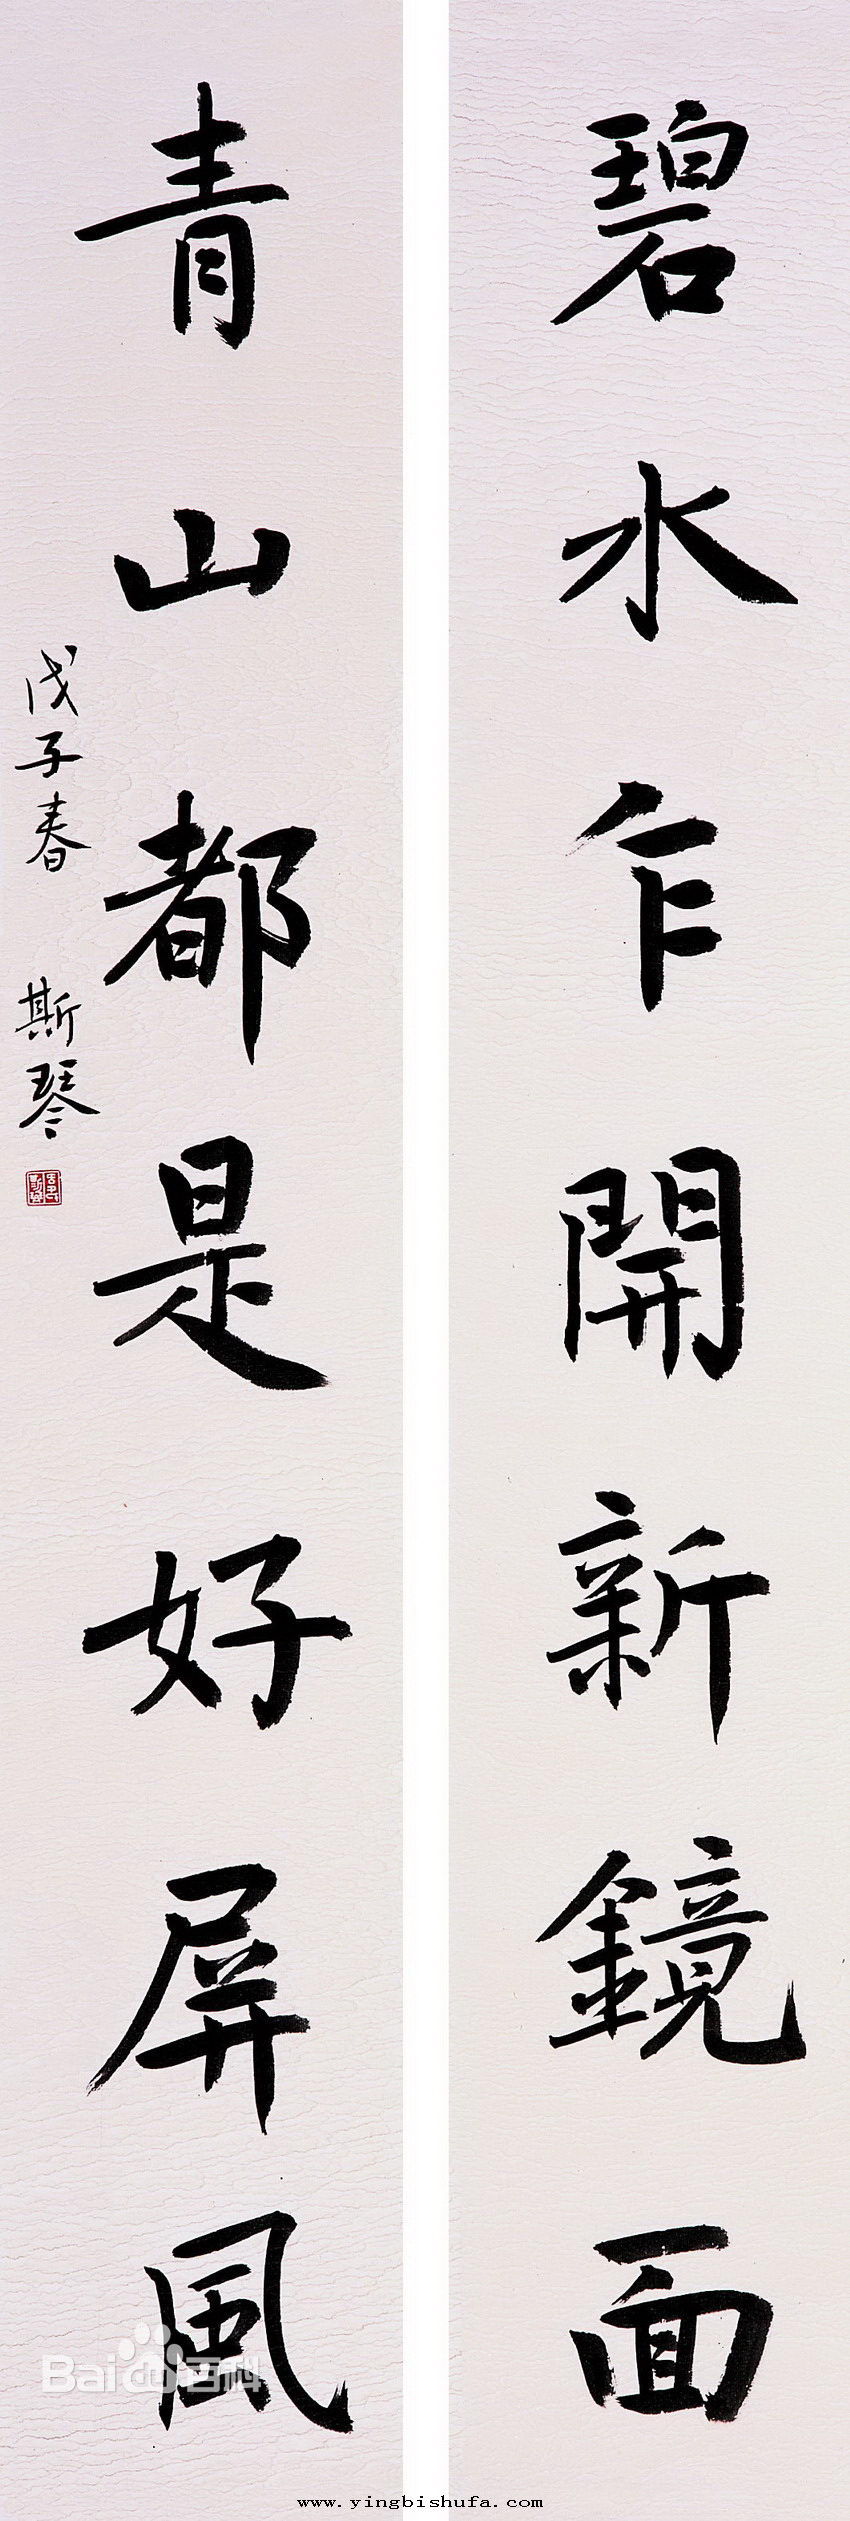 碧水乍開新鏡面
青山都是好屏風
戊子春 斯琴
Bai百科
www.yingbishufa.com